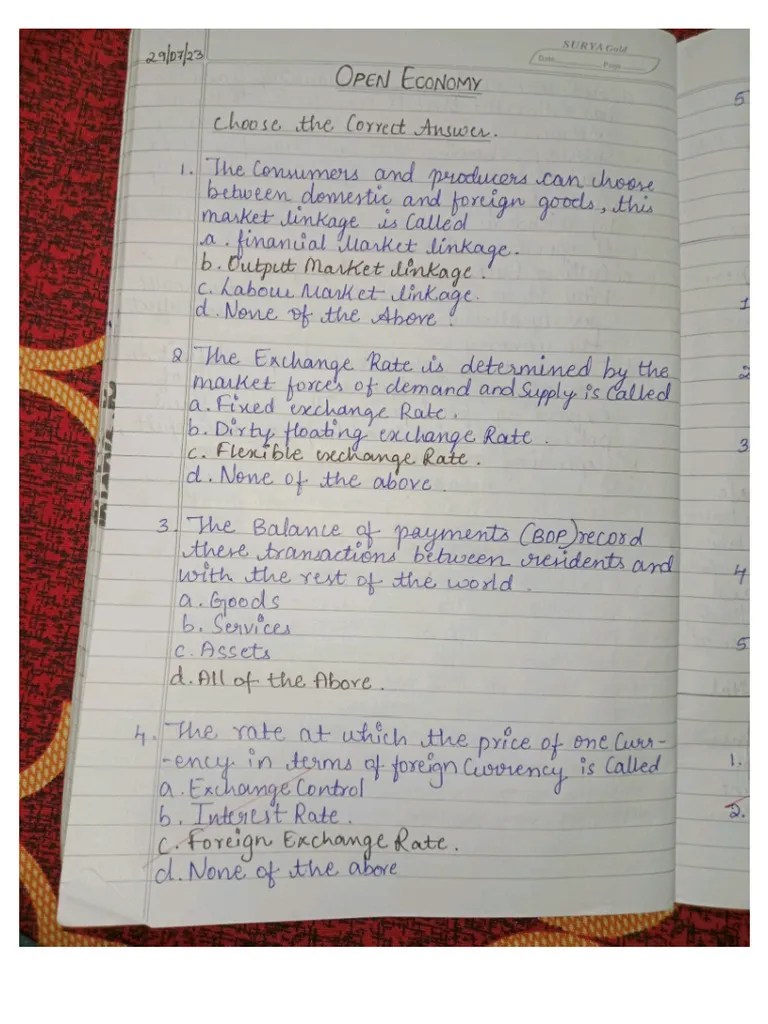 SURYA Gold
29/07/23
Date Page
OPEN ECONOMY
Choose the Correct Answer.
1. The Consumers and producers can choose
between domestic and foreign goods, this
market linkage is Called
a. financial Market linkage.
b. Output Market linkage.
c. Labour Market linkage.
d. None of the Above.
2 The Exchange Rate is determined by the
market forces of demand and Supply is Called
a. Fixed exchange Rate.
b. Dirty floating exchange Rate.
c. Flexible exchange Rate.
d. None of the above.
3. The Balance of payments (BOP) record
these transactions between residents and
with the rest of the world.
a. Goods
b. Services
c. Assets
d. All of the Above.
4. The rate at which the price of one Curr-
-ency in terms of foreign Currency is Called
a. Exchange Control
b. Interest Rate.
c. Foreign Exchange Rate.
d. None of the above
5
1
2
3
4
5
1.
2.